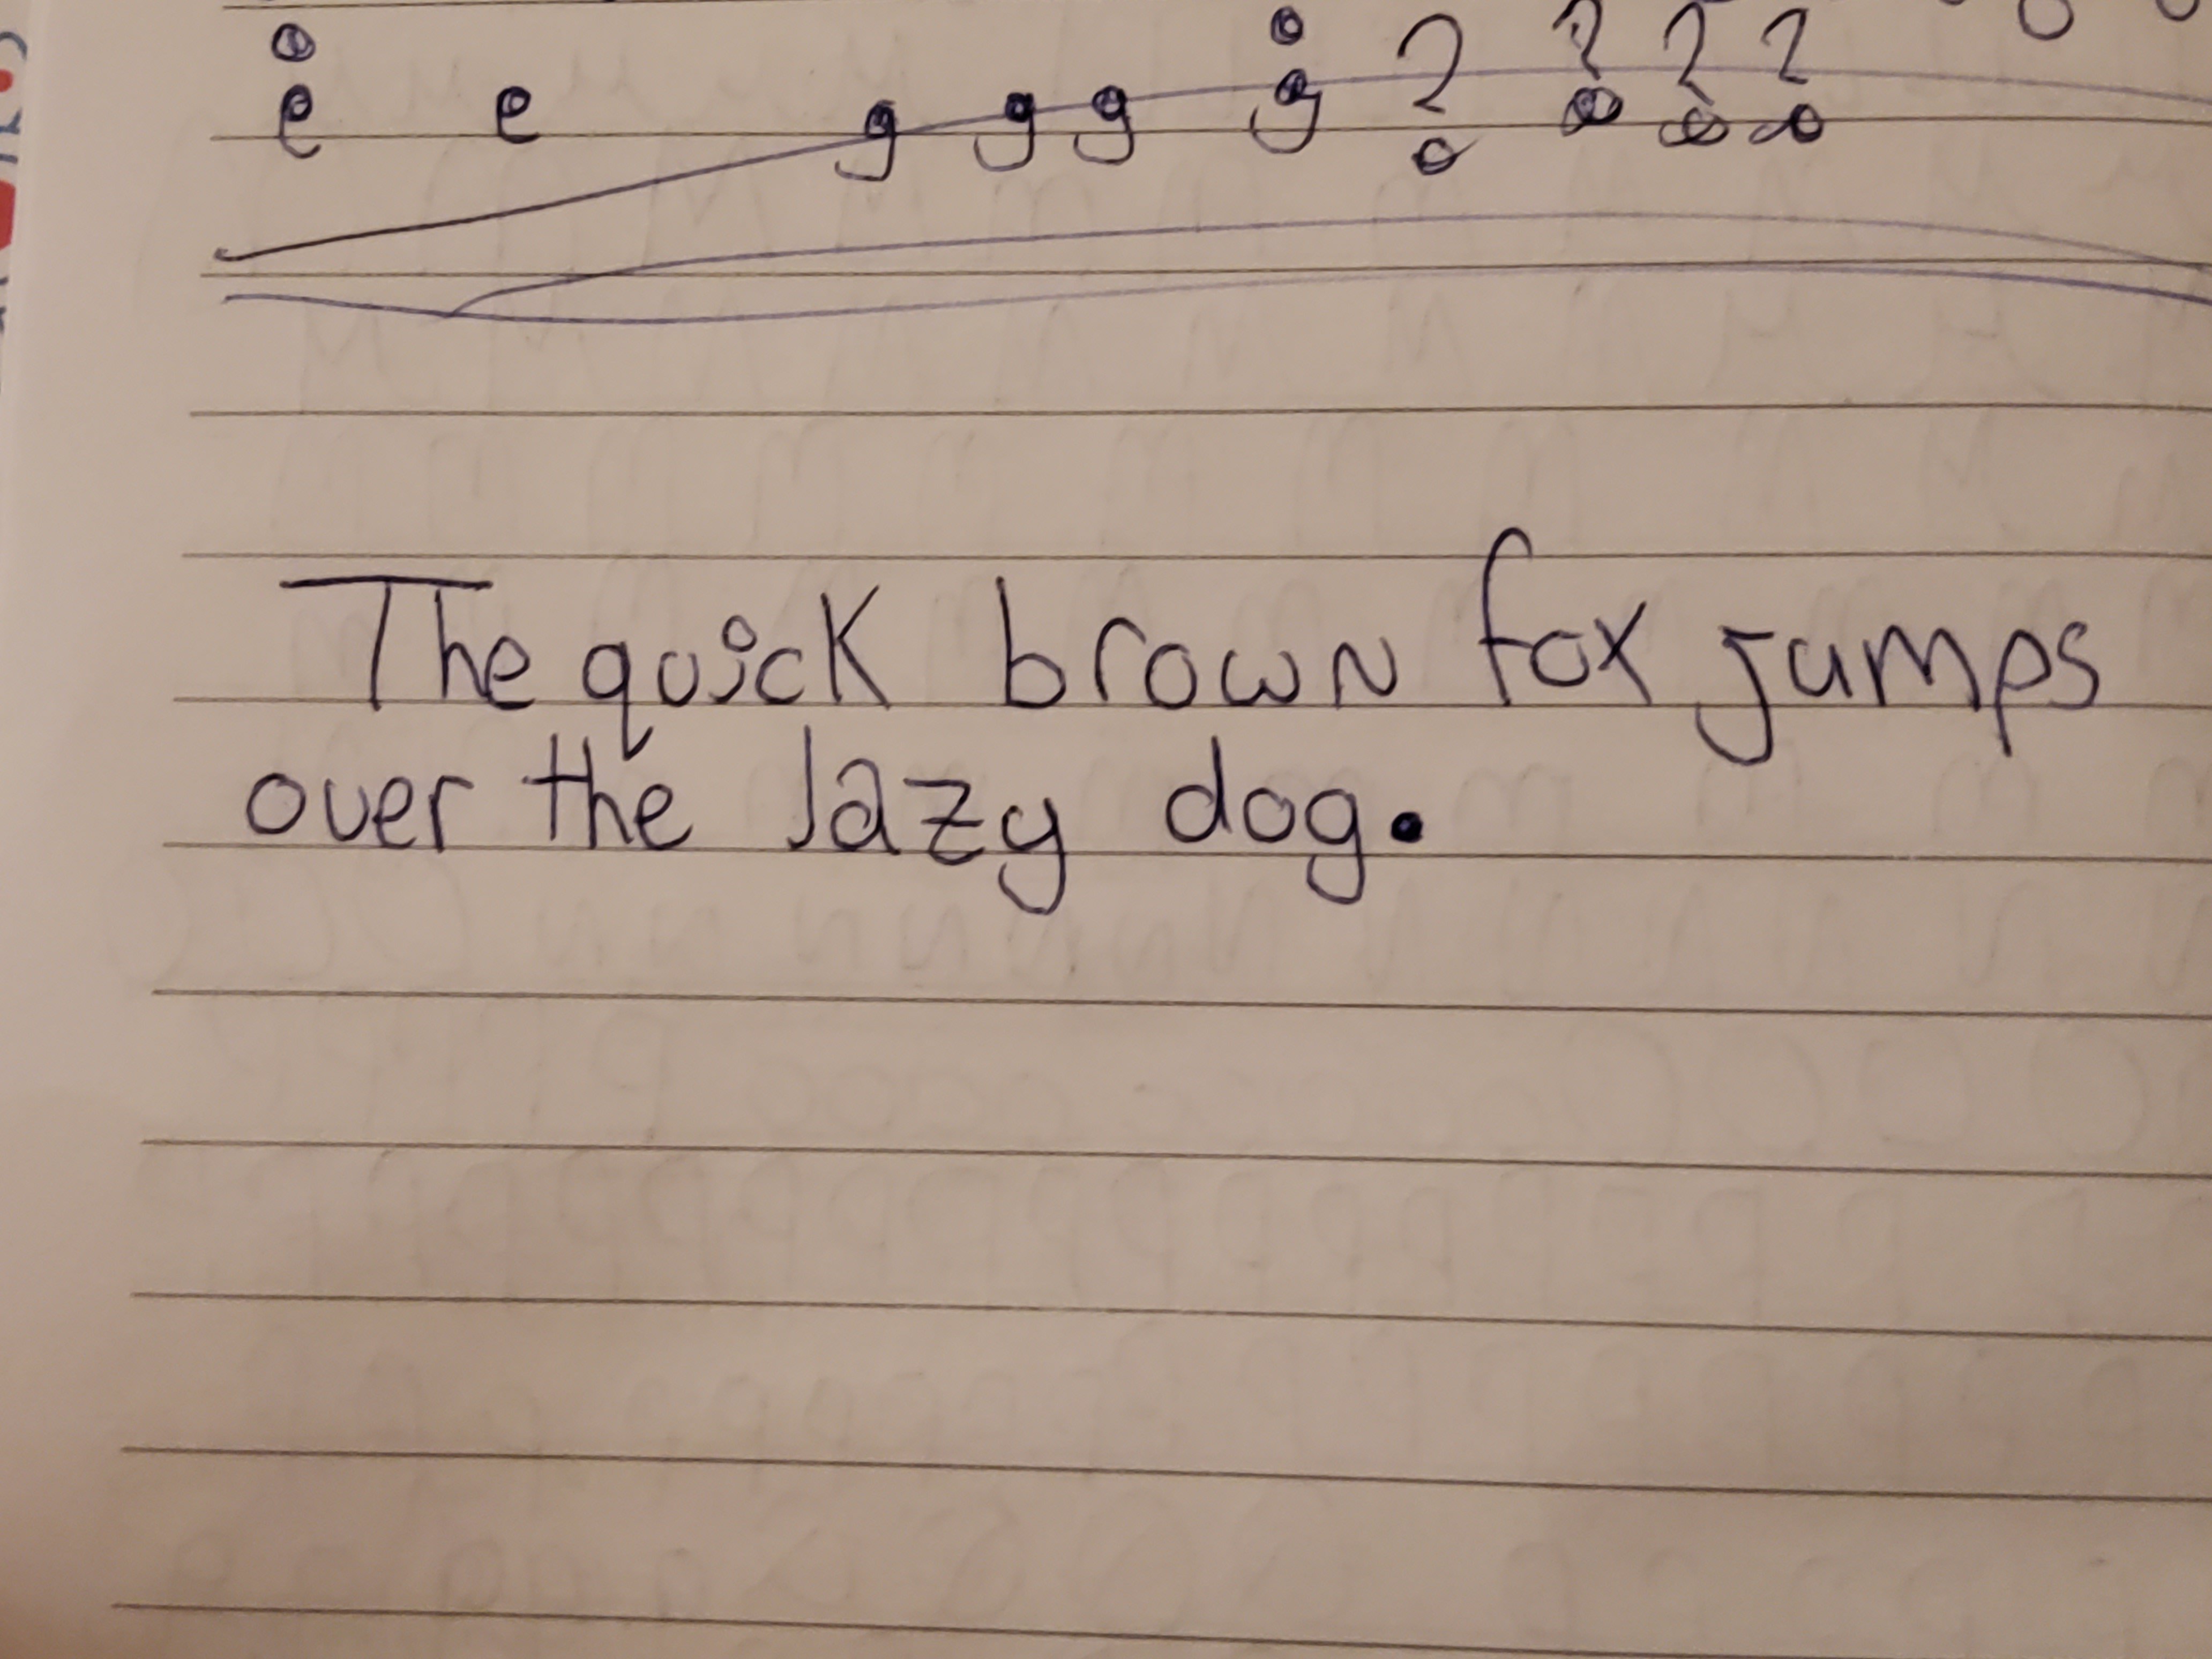 e e g g g g ? ? ? ?
The quick brown fox jumps
over the lazy dog.